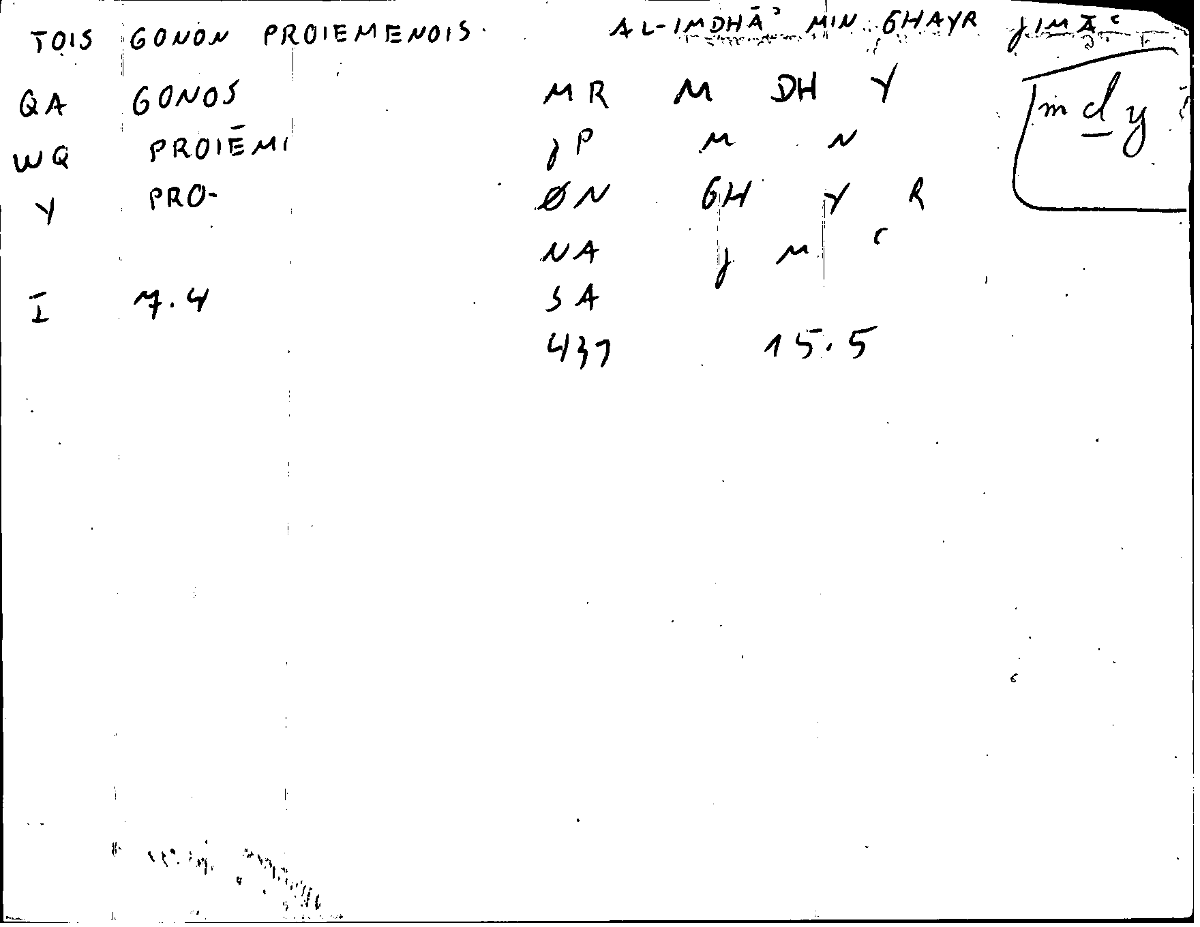 TOIS GONON PROIEMENOIS. AL-IMDHĀʾ MIN GHAYR JIMĀʿ
QA GONOS MR M DH Y m d y
WQ PROIĒMI JP M N
Y PRO- ØN GH Y R
NA J M ʿ
I 7.4 SA
431 15.5